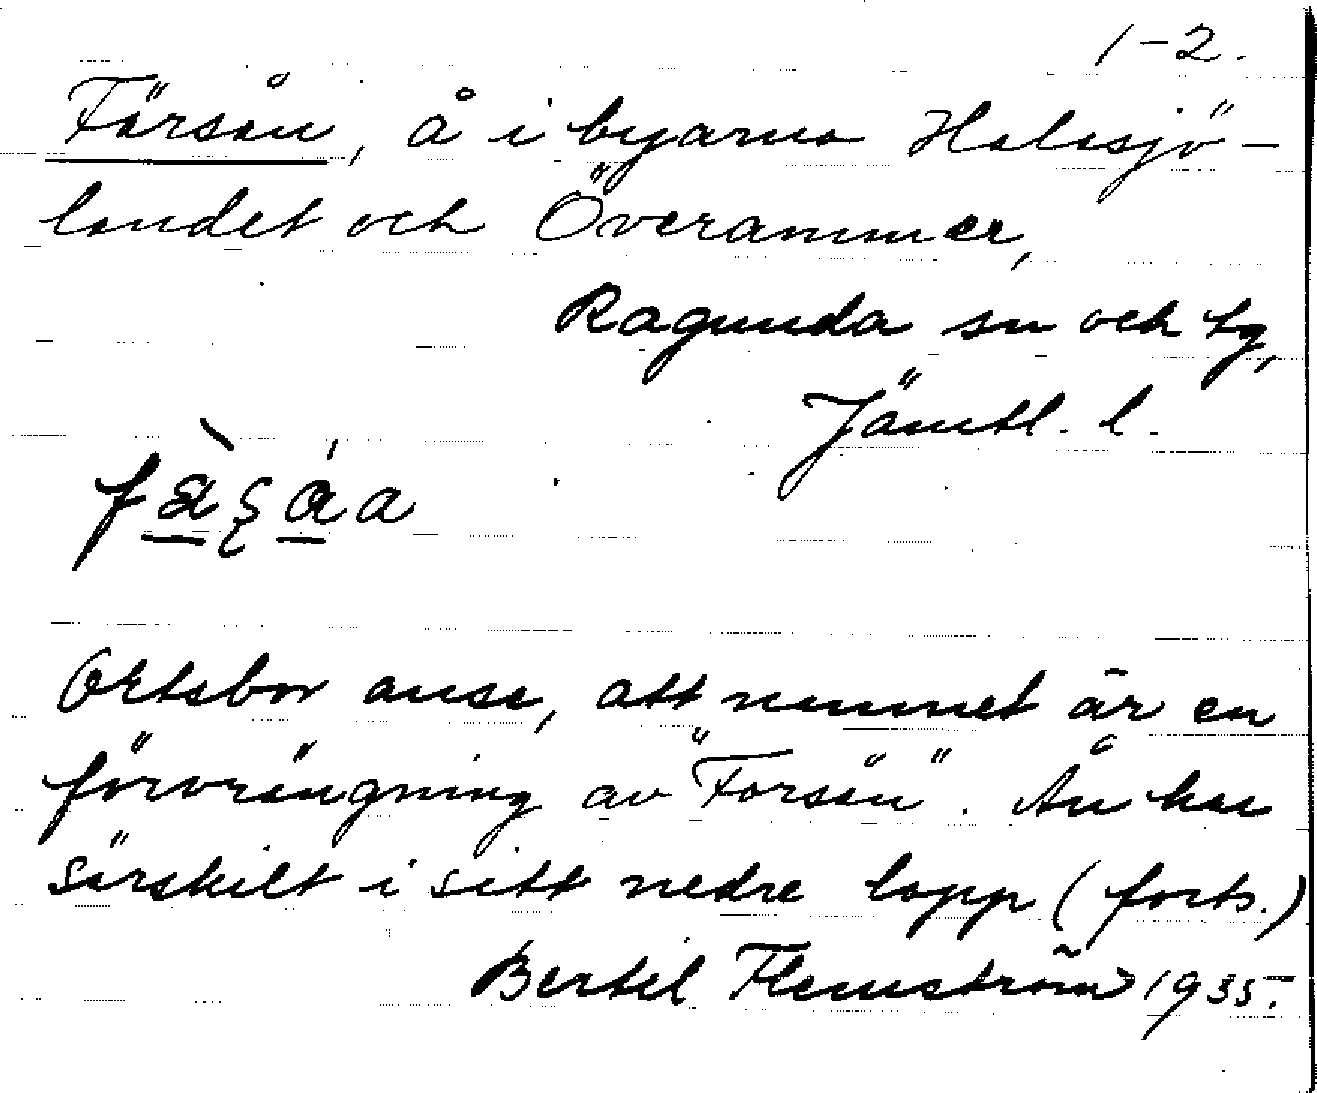 1-2.
Färsån, å i byarna Halasjö-
landet och Överammer,
Ragunda sn och tg,
Jämtl. l.
Ortsbor anse, att namnet är en
förvrängning av "Forsån". Ån har
särskilt i sitt nedre lopp (forts.)
Bertil Flemström 1935.